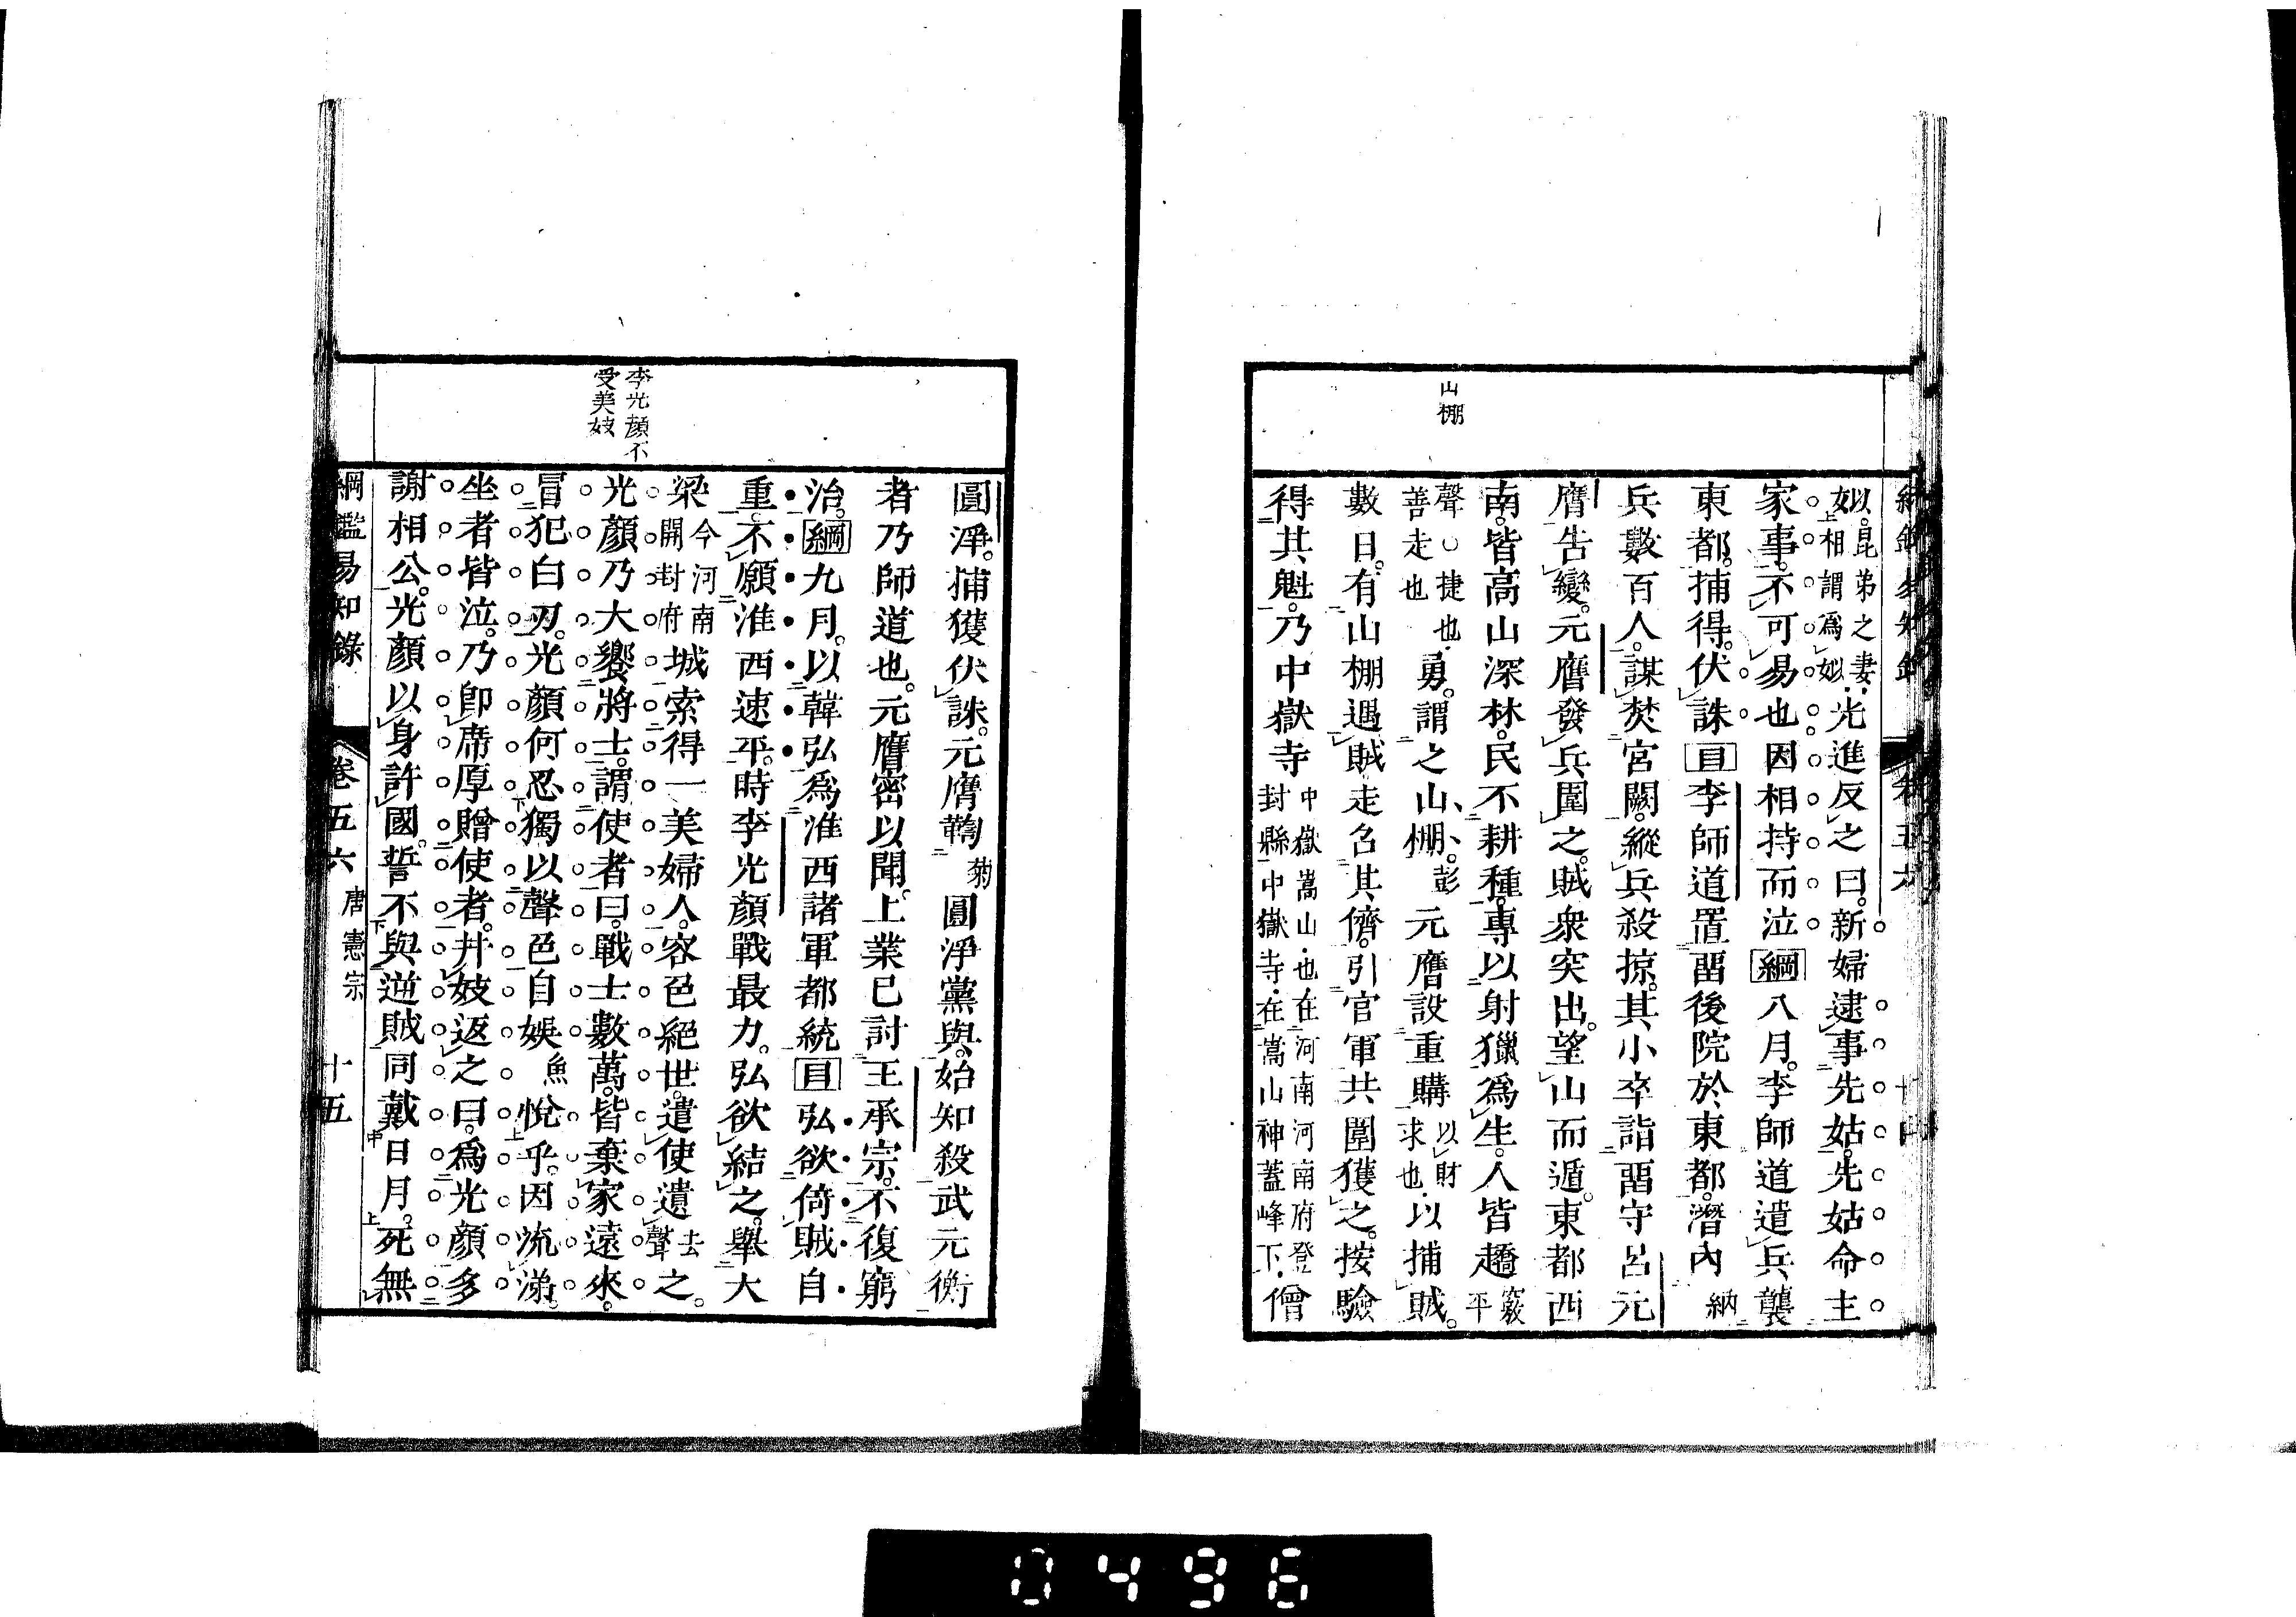 山棚
姒。昆弟之妻.相謂爲姒.光進反之曰。新婦逮事先姑。先姑命主
家事。不可易也因相持而泣綱八月。李師道遣兵襲
東都。捕得。伏誅目李師道置留後院於東都。潛內納
兵數百人。謀焚宮闕。縱兵殺掠。其小卒詣留守呂元
膺告變。元膺發兵圍之。賊衆突出。望山而遁。東都西
南。皆高山深林。民不耕種。專以射獵爲生。人皆趫竅平
聲○捷也.善走也勇。謂之山棚。彭元膺設重購以財求也.以捕賊。
數日。有山棚遇賊走召其儕。引官軍共圍獲之。按驗
得其魁。乃中嶽寺中嶽嵩山.也.在河南河南府登封縣中嶽寺.在嵩山神蓋峰下.僧
李光顏不
受美妓
圓淨。捕獲伏誅。元膺鞫菊圓淨黨與。始知殺武元衡
者乃師道也。元膺密以聞。上業已討王承宗。不復窮
治。綱九月。以韓弘爲淮西諸軍都統目弘欲倚賊自
重。不願淮西速平。時李光顏戰最力。弘欲結之。舉大
梁今河南開封府城索得一美婦人。容色絕世。遣使遺去聲之。
光顏乃大饗將士。謂使者曰。戰士數萬。皆棄家遠來。
冒犯白刃。光顏何忍獨以聲色自娛魚悅乎。因流涕。
坐者皆泣。乃卽席厚贈使者。幷妓返之曰。爲光顏多
謝相公。光顏以身許國。誓不與逆賊同戴日月。死無
綱鑑易知錄 卷五六 唐憲宗 十五
0496